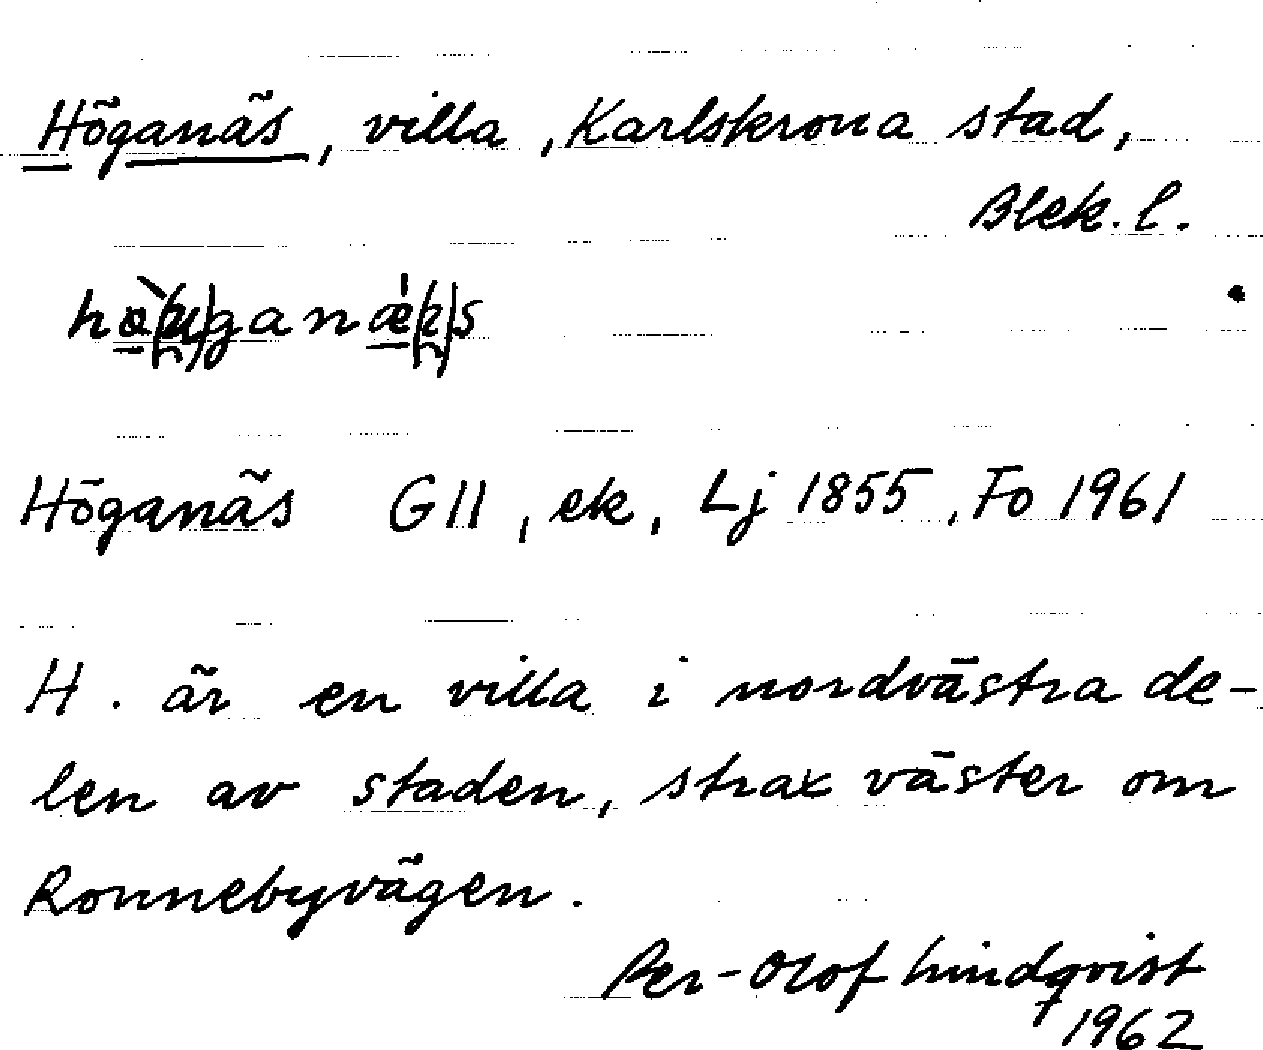 Höganäs, villa, Karlskrona stad,
Blek. l.
Höganäs G11, ek, Lj 1855, Fo 1961
H. är en villa i nordvästra de-
len av staden, strax väster om
Ronnebyvägen.
Per-Olof Lindqvist
1962